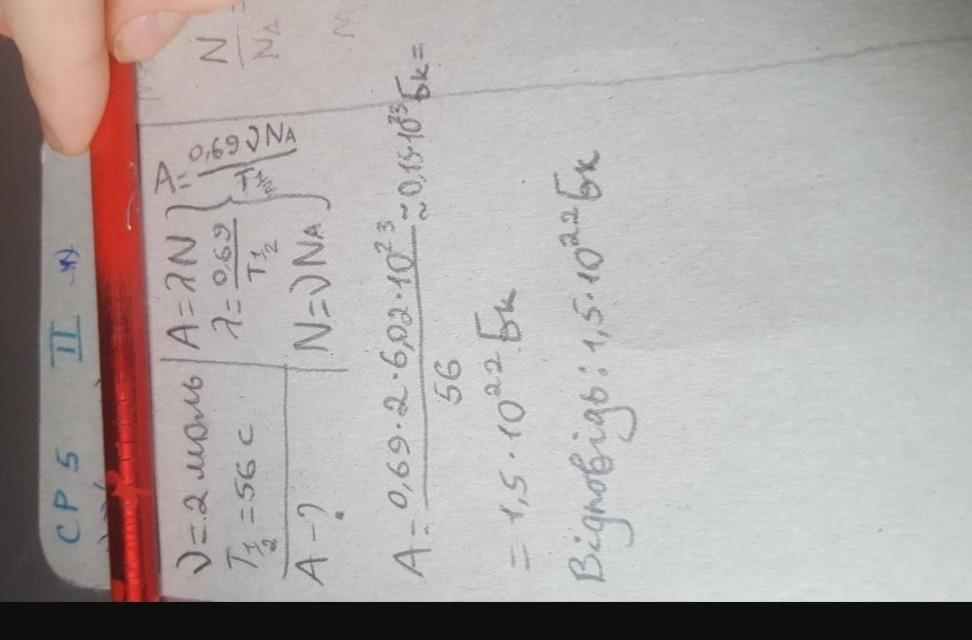 СР 5 II
N/Nₐ
ν = 2 моль
T½ = 56 с
A – ?
A = λN
λ = 0,69/T½
N = νNₐ
A = 0,69νNₐ/T½
A = 0,69·2·6,02·10²³/56 ≈ 0,15·10²³ Бк =
= 1,5·10²² Бк
Відповідь: 1,5·10²² Бк